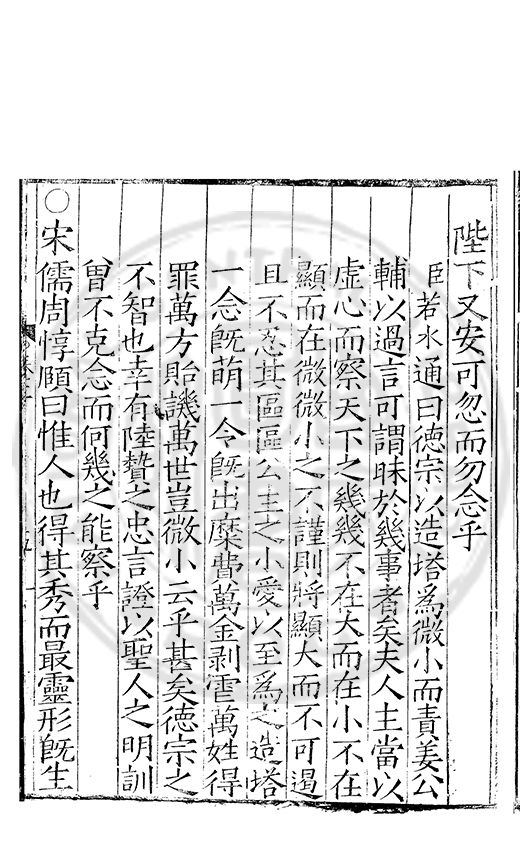 陛下又安可忽而勿念乎
臣若水通曰德宗以造塔為微小而責姜公
輔以過言可謂昧於幾事者矣夫人主當以
虛心而察天下之幾幾不在大而在小不在
顯而在微微小之不謹則將顯大而不可遏
且不忍其區區公主之小愛以至為之造塔
一念旣萌一令旣出糜費萬金剥害萬姓得
罪萬方貽譏萬世豈微小云乎甚矣德宗之
不智也幸有陸贄之忠言證以聖人之明訓
曾不克念而何幾之能察乎
○宋儒周惇頤曰惟人也得其秀而最靈形旣生